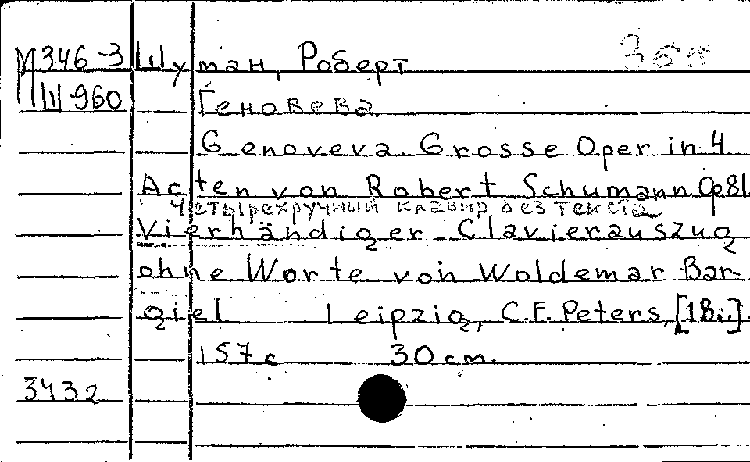 М346-3 Шуман, Роберт
Ш960 Геновева
Genoveva. Grosse Oper in 4
Acten von Robert Schumann Op81
Четырехручный клавир без текста
Vierhändiger Clavierauszug
ohne Worte von Woldemar Bar-
giel Leipzig, C.F. Peters, [18..].
157 с 30 cm.
3432